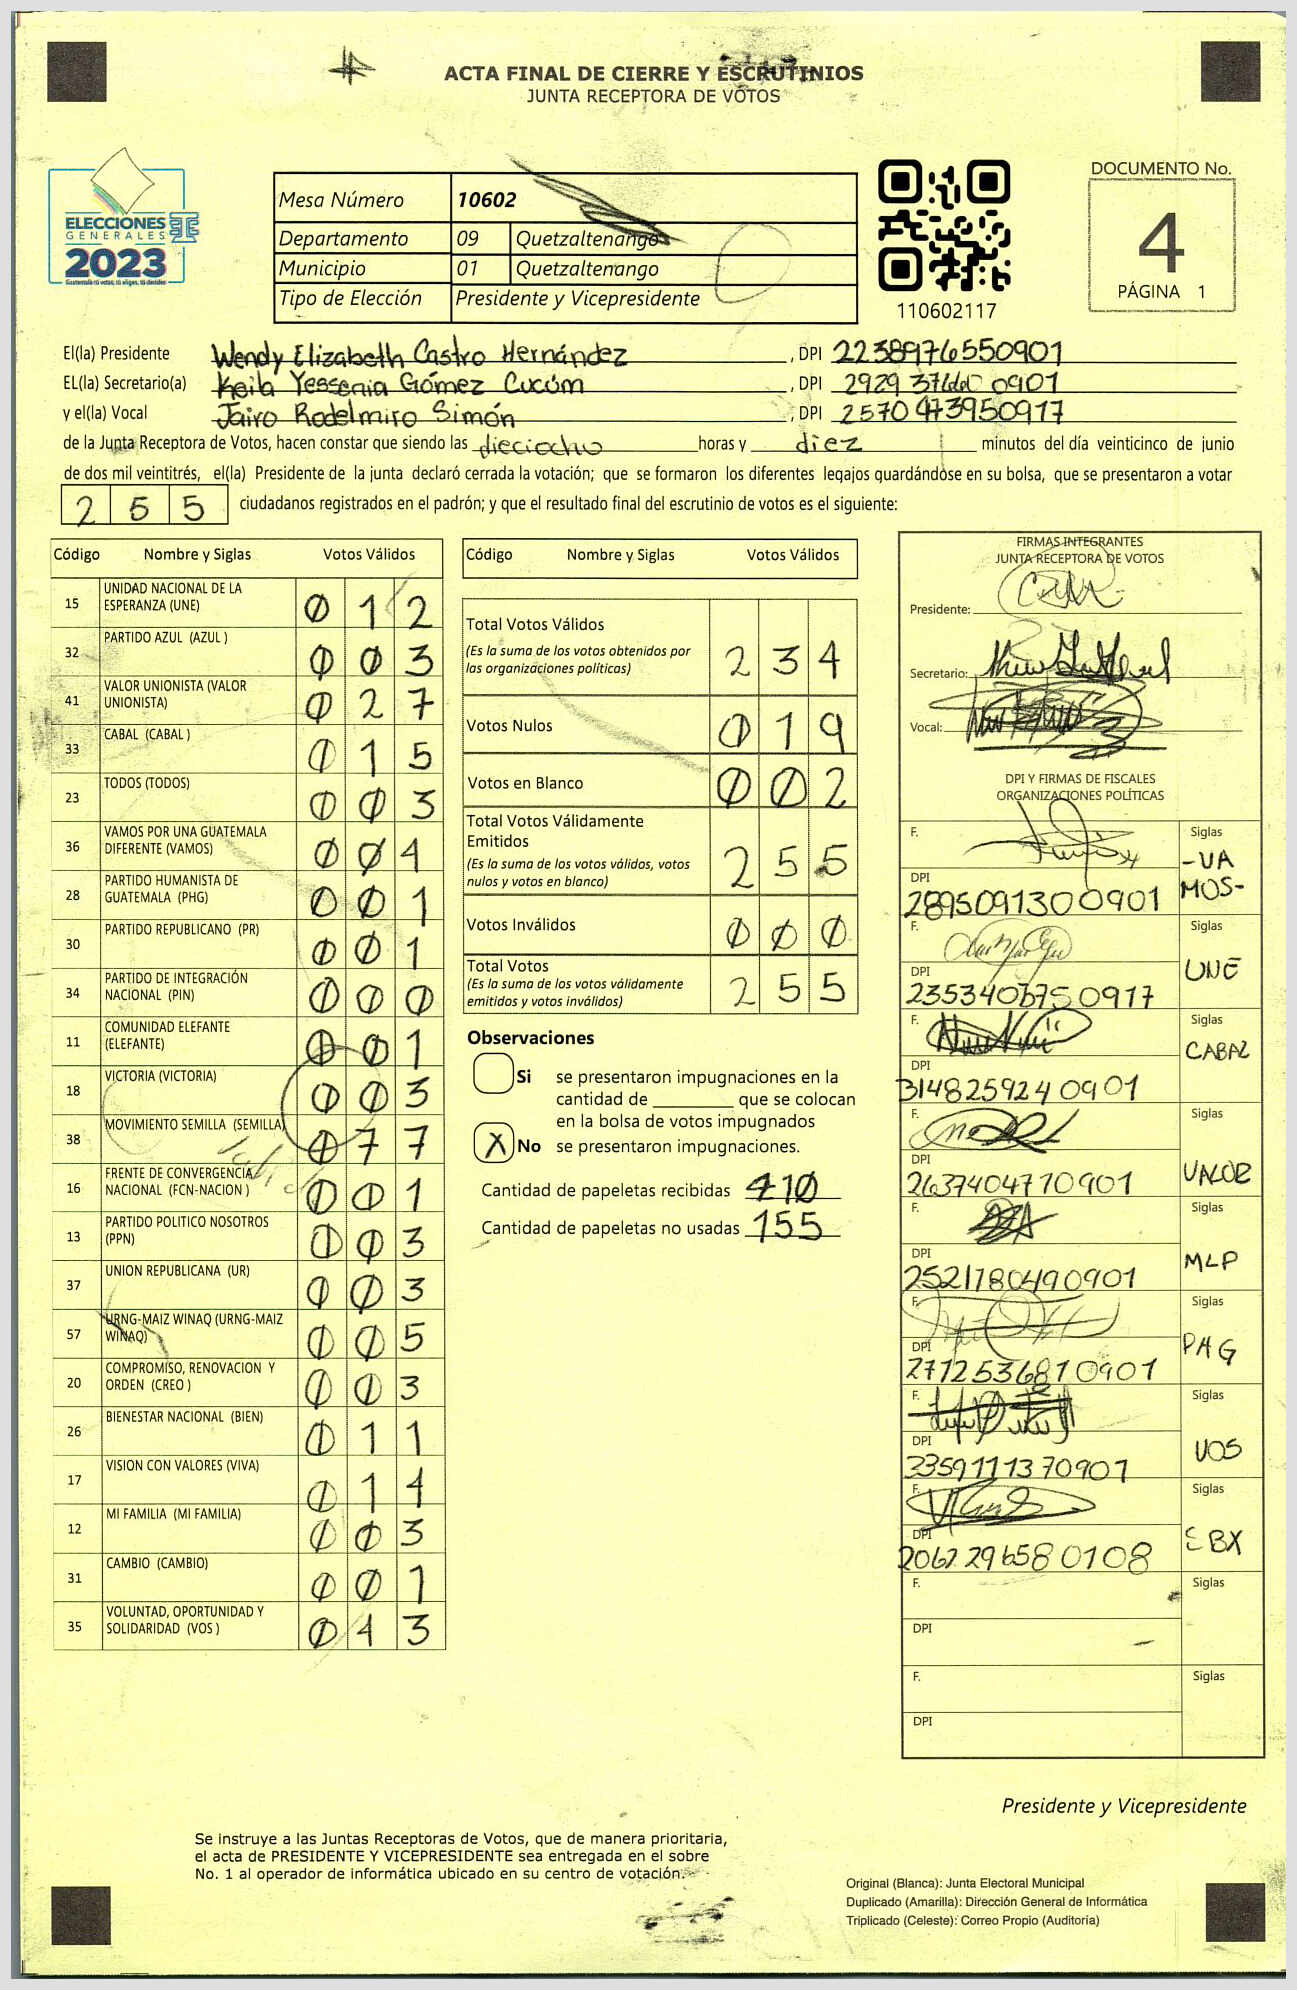 ACTA FINAL DE CIERRE Y ESCRUTINIOS
JUNTA RECEPTORA DE VOTOS
ELECCIONES
GENERALES
2023
Mesa Número 10602
Departamento 09 Quetzaltenango
Municipio 01 Quetzaltenango
Tipo de Elección Presidente y Vicepresidente
110602117
DOCUMENTO No.
4
PÁGINA 1
El(la) Presidente Wendy Elizabeth Castro Hernández , DPI 2238976550901
EL(la) Secretario(a) Keila Yessenia Gómez Cucúm , DPI 2929 0901
y el(la) Vocal Jairo Rodelmiro Simón , DPI 2570473950917
de la Junta Receptora de Votos, hacen constar que siendo las dieciocho horas y diez minutos del día veinticinco de junio
de dos mil veintitrés, el(la) Presidente de la junta declaró cerrada la votación; que se formaron los diferentes legajos guardándose en su bolsa, que se presentaron a votar
255 ciudadanos registrados en el padrón; y que el resultado final del escrutinio de votos es el siguiente:
Código Nombre y Siglas Votos Válidos
15 UNIDAD NACIONAL DE LA ESPERANZA (UNE) 0 1 2
32 PARTIDO AZUL (AZUL ) 0 0 3
41 VALOR UNIONISTA (VALOR UNIONISTA) 0 2 7
33 CABAL (CABAL ) 0 1 5
23 TODOS (TODOS) 0 0 3
36 VAMOS POR UNA GUATEMALA DIFERENTE (VAMOS) 0 0 4
28 PARTIDO HUMANISTA DE GUATEMALA (PHG) 0 0 1
30 PARTIDO REPUBLICANO (PR) 0 0 1
34 PARTIDO DE INTEGRACIÓN NACIONAL (PIN) 0 0 0
11 COMUNIDAD ELEFANTE (ELEFANTE) 0 0 1
18 VICTORIA (VICTORIA) 0 0 3
38 MOVIMIENTO SEMILLA (SEMILLA) 0 7 7
16 FRENTE DE CONVERGENCIA NACIONAL (FCN-NACION ) 0 0 1
13 PARTIDO POLITICO NOSOTROS (PPN) 0 0 3
37 UNION REPUBLICANA (UR) 0 0 3
57 URNG-MAIZ WINAQ (URNG-MAIZ WINAQ) 0 0 5
20 COMPROMISO, RENOVACION Y ORDEN (CREO ) 0 0 3
26 BIENESTAR NACIONAL (BIEN) 0 1 1
17 VISION CON VALORES (VIVA) 0 1 4
12 MI FAMILIA (MI FAMILIA) 0 0 3
31 CAMBIO (CAMBIO) 0 0 1
35 VOLUNTAD, OPORTUNIDAD Y SOLIDARIDAD (VOS ) 0 4 3
Código Nombre y Siglas Votos Válidos
Total Votos Válidos 2 3 4
(Es la suma de los votos obtenidos por
las organizaciones políticas)
Votos Nulos 0 1 9
Votos en Blanco 0 0 2
Total Votos Válidamente
Emitidos 2 5 5
(Es la suma de los votos válidos, votos
nulos y votos en blanco)
Votos Inválidos 0 0 0
Total Votos 2 5 5
(Es la suma de los votos válidamente
emitidos y votos inválidos)
Observaciones
Si se presentaron impugnaciones en la
cantidad de ________ que se colocan
en la bolsa de votos impugnados
X No se presentaron impugnaciones.
Cantidad de papeletas recibidas 410
Cantidad de papeletas no usadas 155
FIRMAS INTEGRANTES
JUNTA RECEPTORA DE VOTOS
Presidente:
Secretario:
Vocal:
DPI Y FIRMAS DE FISCALES
ORGANIZACIONES POLÍTICAS
F. Siglas
-VA
MOS-
DPI
2895091300901
F. Siglas
UNE
DPI
0917
F. Siglas
CABAL
DPI
3148259240901
F. Siglas
VALOR
DPI
2637404770901
F. Siglas
MLP
DPI
2521780490901
F. Siglas
PAG
DPI
2712536810901
F. Siglas
VOS
DPI
3359111370901
F. Siglas
EBX
DPI
2062296580108
F. Siglas
DPI
F. Siglas
DPI
Presidente y Vicepresidente
Se instruye a las Juntas Receptoras de Votos, que de manera prioritaria,
el acta de PRESIDENTE Y VICEPRESIDENTE sea entregada en el sobre
No. 1 al operador de informática ubicado en su centro de votación.
Original (Blanca): Junta Electoral Municipal
Duplicado (Amarilla): Dirección General de Informática
Triplicado (Celeste): Correo Propio (Auditoría)